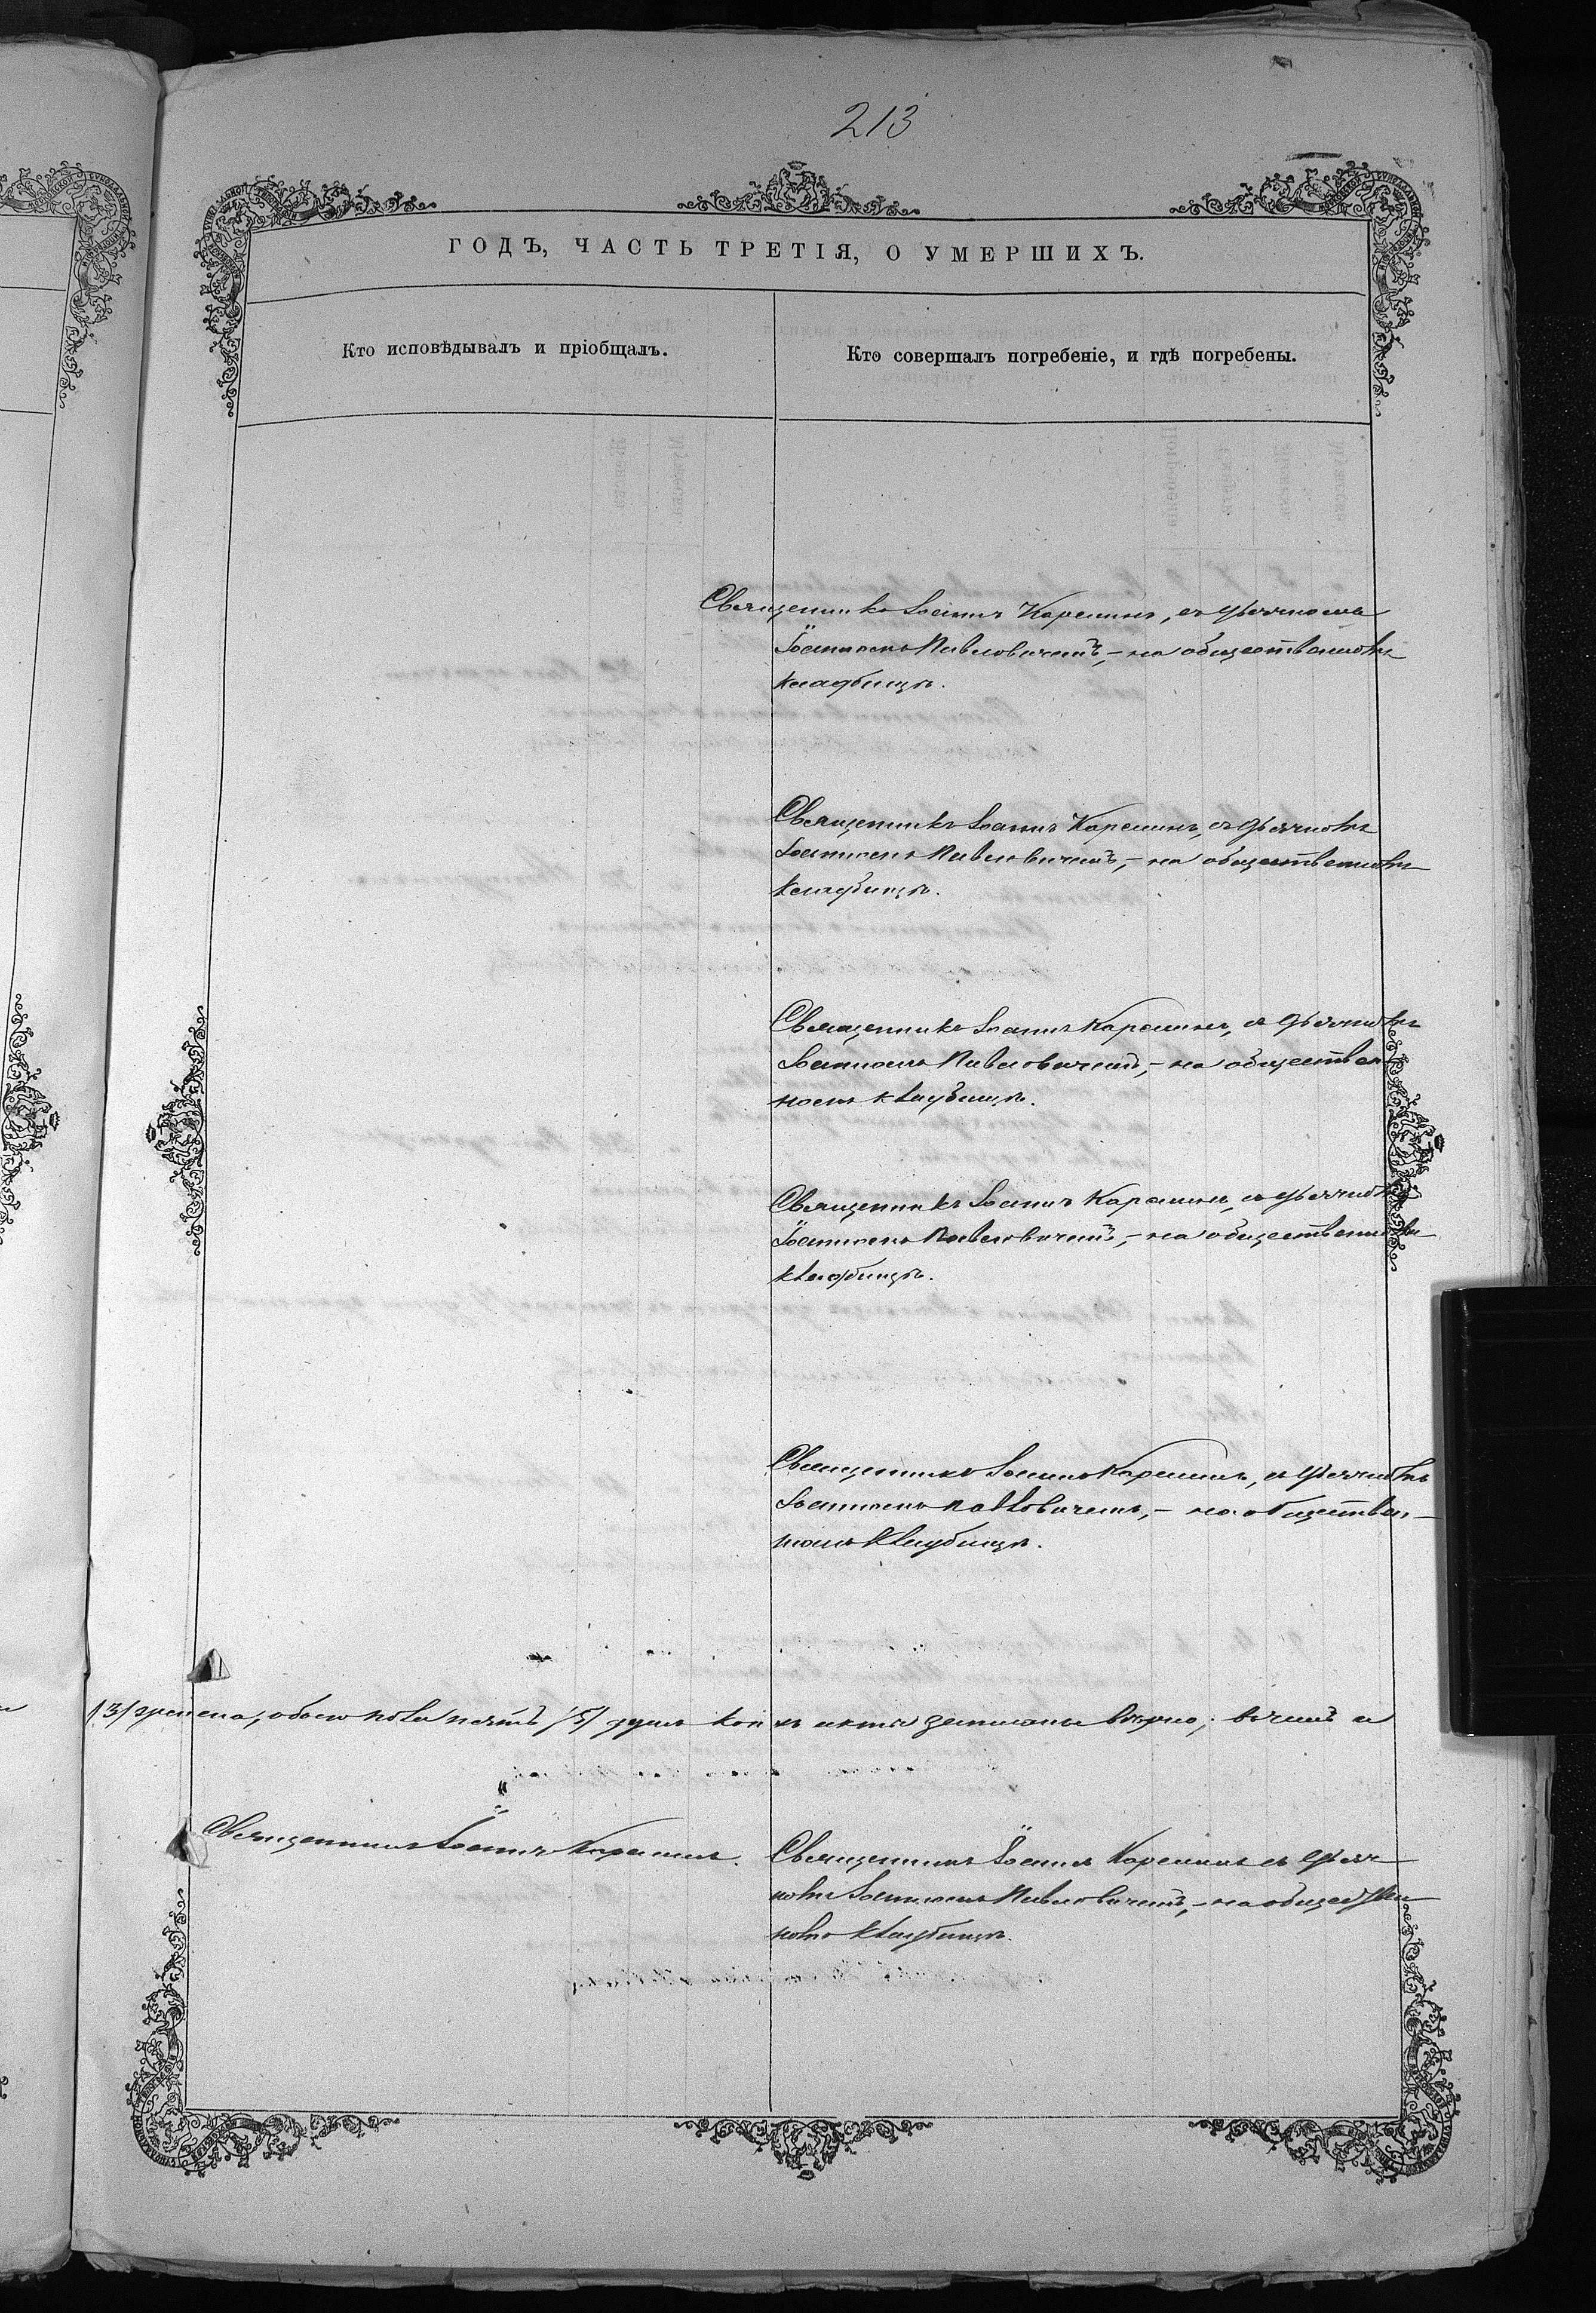 213
ГОДЪ, ЧАСТЬ ТРЕТІЯ, О УМЕРШИХЪ.
Кто исповѣдывалъ и пріобщалъ.
Кто совершалъ погребеніе, и гдѣ погребены.
Священникъ Іоаннъ Карелинъ, съ дьячкомъ
Іоанномъ Павловичемъ, – на общественномъ
кладбищѣ.
Священникъ Іоаннъ Карелинъ, съ дьячкомъ
Іоанномъ Павловичемъ, – на общественномъ
кладбищѣ.
Священникъ Іоаннъ Карелинъ, съ дьячкомъ
Іоанномъ Павловичемъ, – на обществен-
номъ кладбищѣ.
Священникъ Іоаннъ Карелинъ, съ дьячкомъ
Іоанномъ Павловичемъ, – на общественномъ
кладбищѣ.
Священникъ Іоаннъ Карелинъ, съ дьячкомъ
Іоанномъ Павловичемъ, – на обществен-
номъ кладбищѣ.
/3/ обоего пола пять /5/ душъ коихъ акты записаны вѣрно, въ чемъ и
Священникъ Іоаннъ Карелинъ.
Священникъ Іоаннъ Карелинъ съ дьяч-
комъ Іоанномъ Павловичемъ, – на обществен-
номъ кладбищѣ.